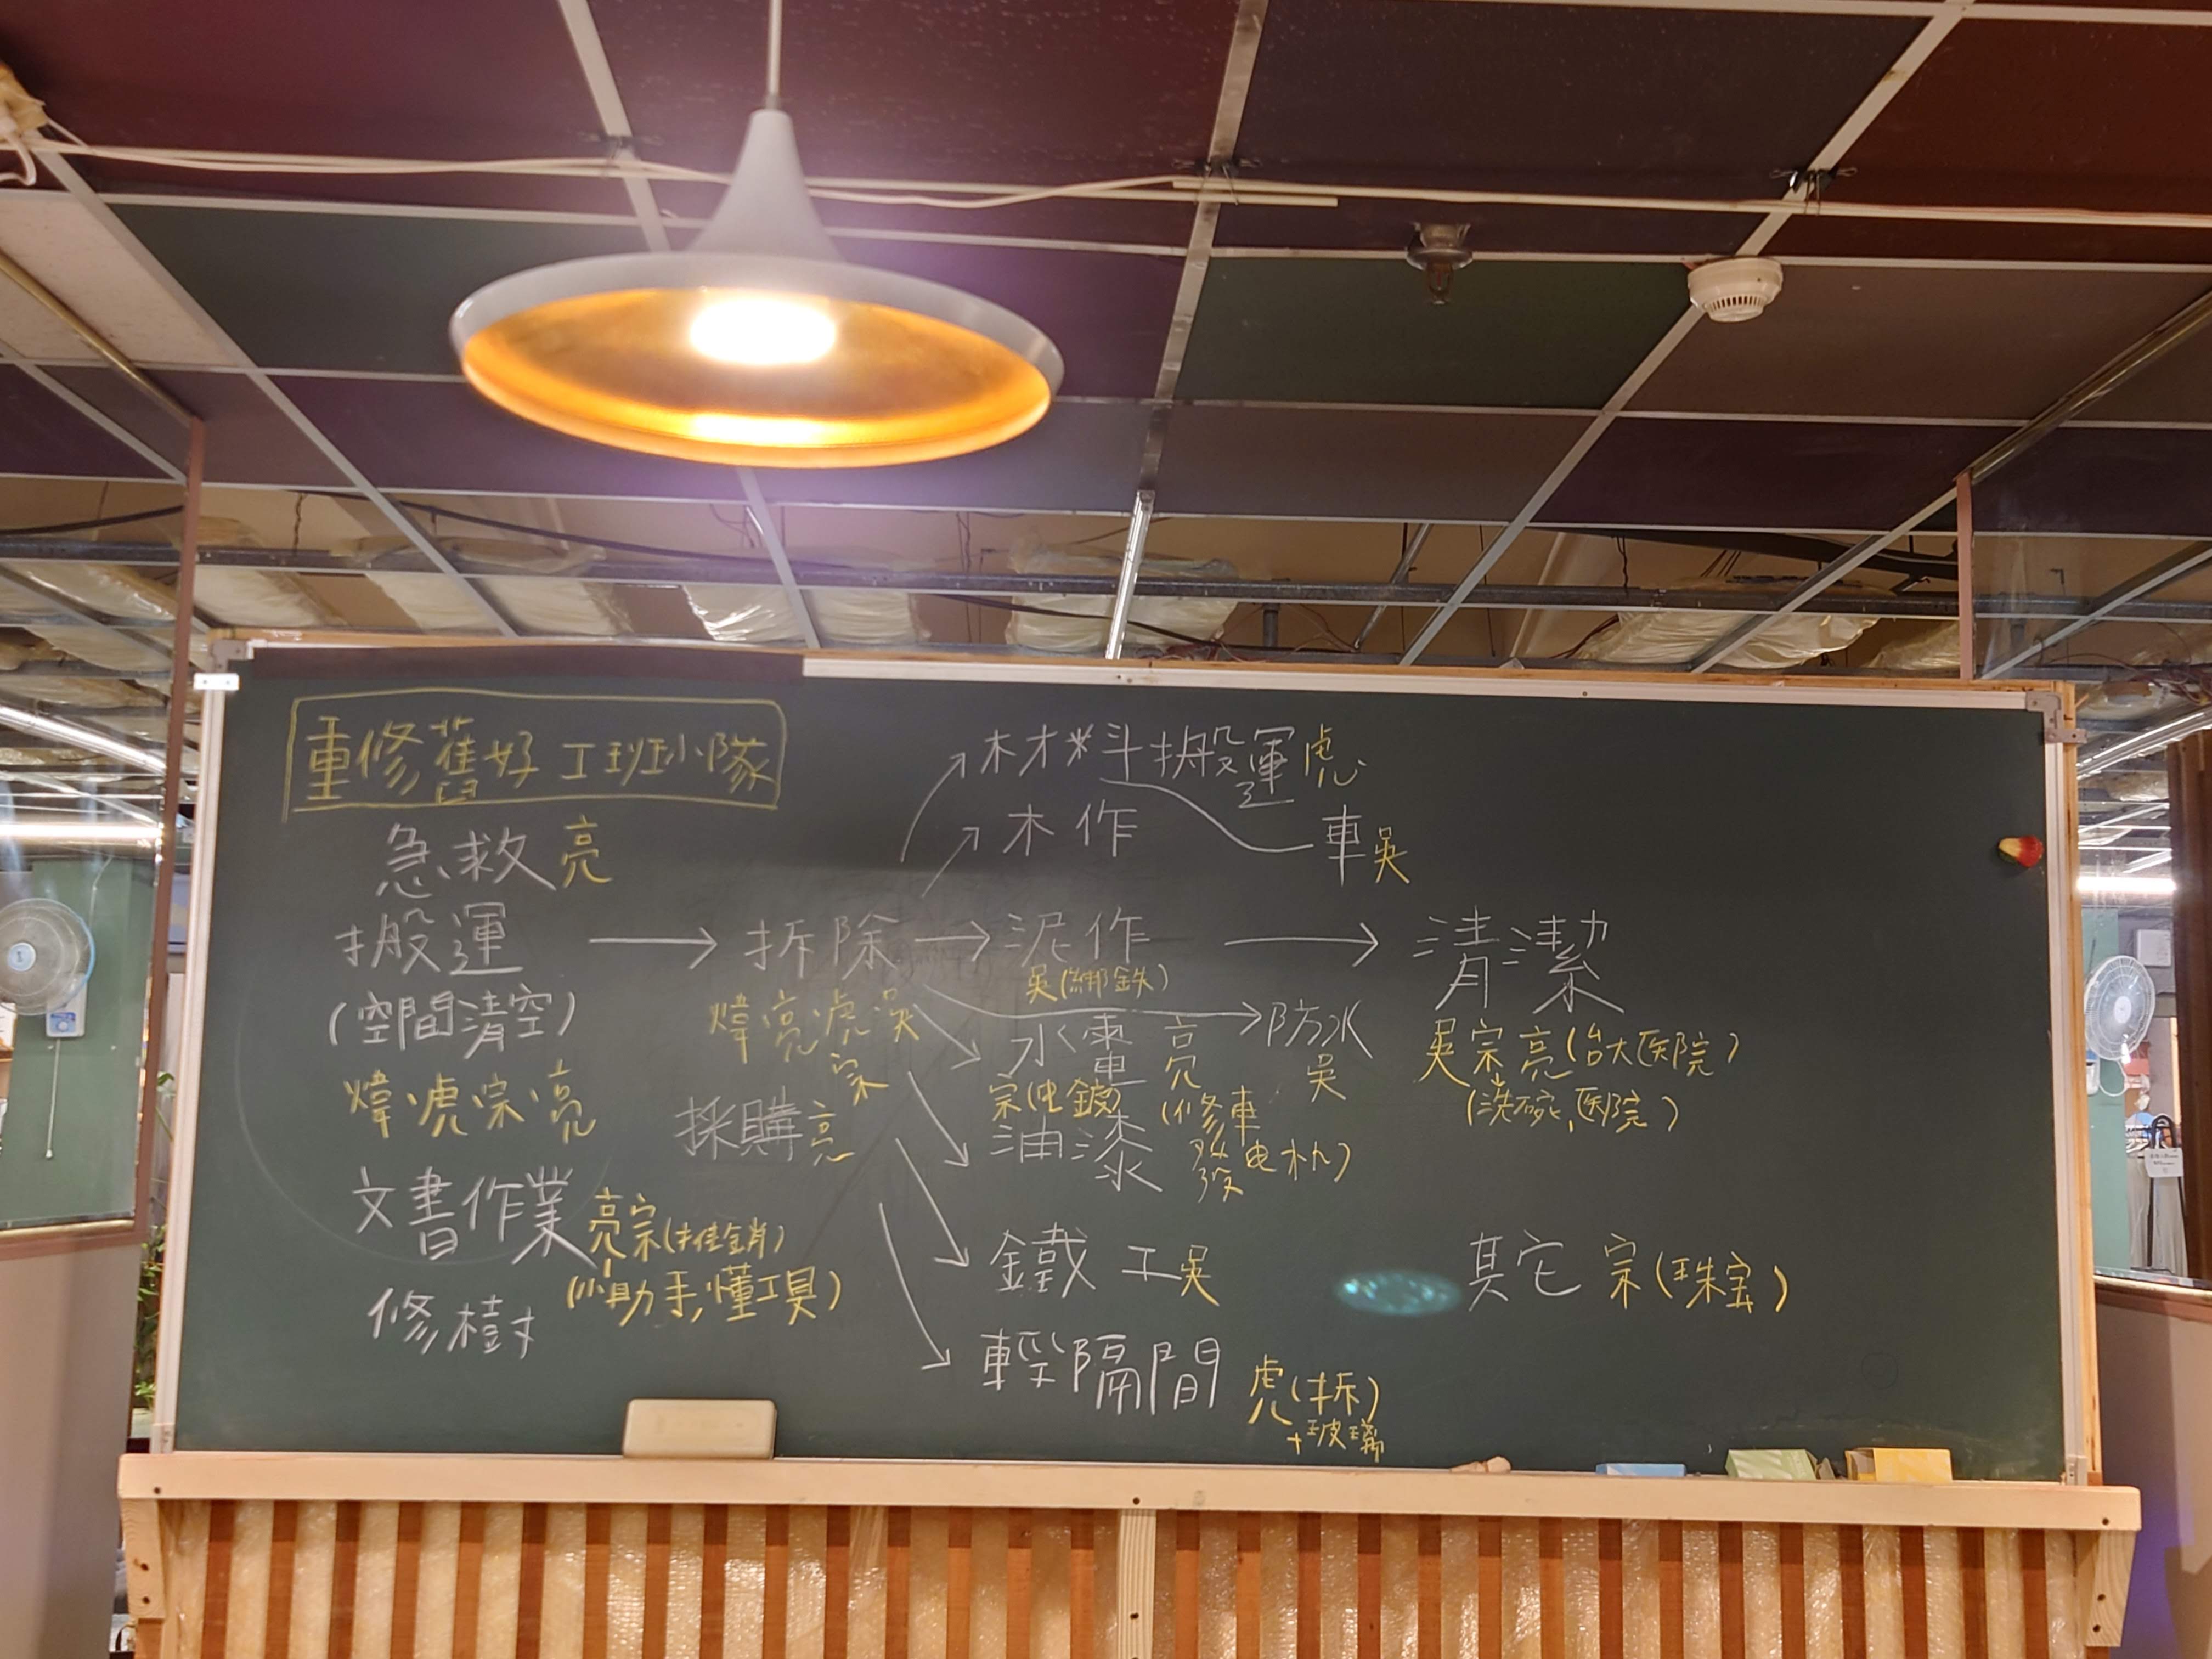 重修舊好 工班小隊
急救 亮
搬運
(空間清空)
煒 虎 宗 亮
文書作業 亮 宗(推銷)
(小助手,懂工具)
修樹
拆除
煒 亮 虎 吳
宗
採購 亮
材料搬運 虎
木作
車 吳
泥作
吳(綁鉄)
防水
吳
水電 亮
(修車
發电机)
油漆
鐵工 吳
輕隔間
虎(拆)
+玻璃
清潔
吳 宗 亮(台大医院)
(洗碗,医院)
其它 宗(珠宝)